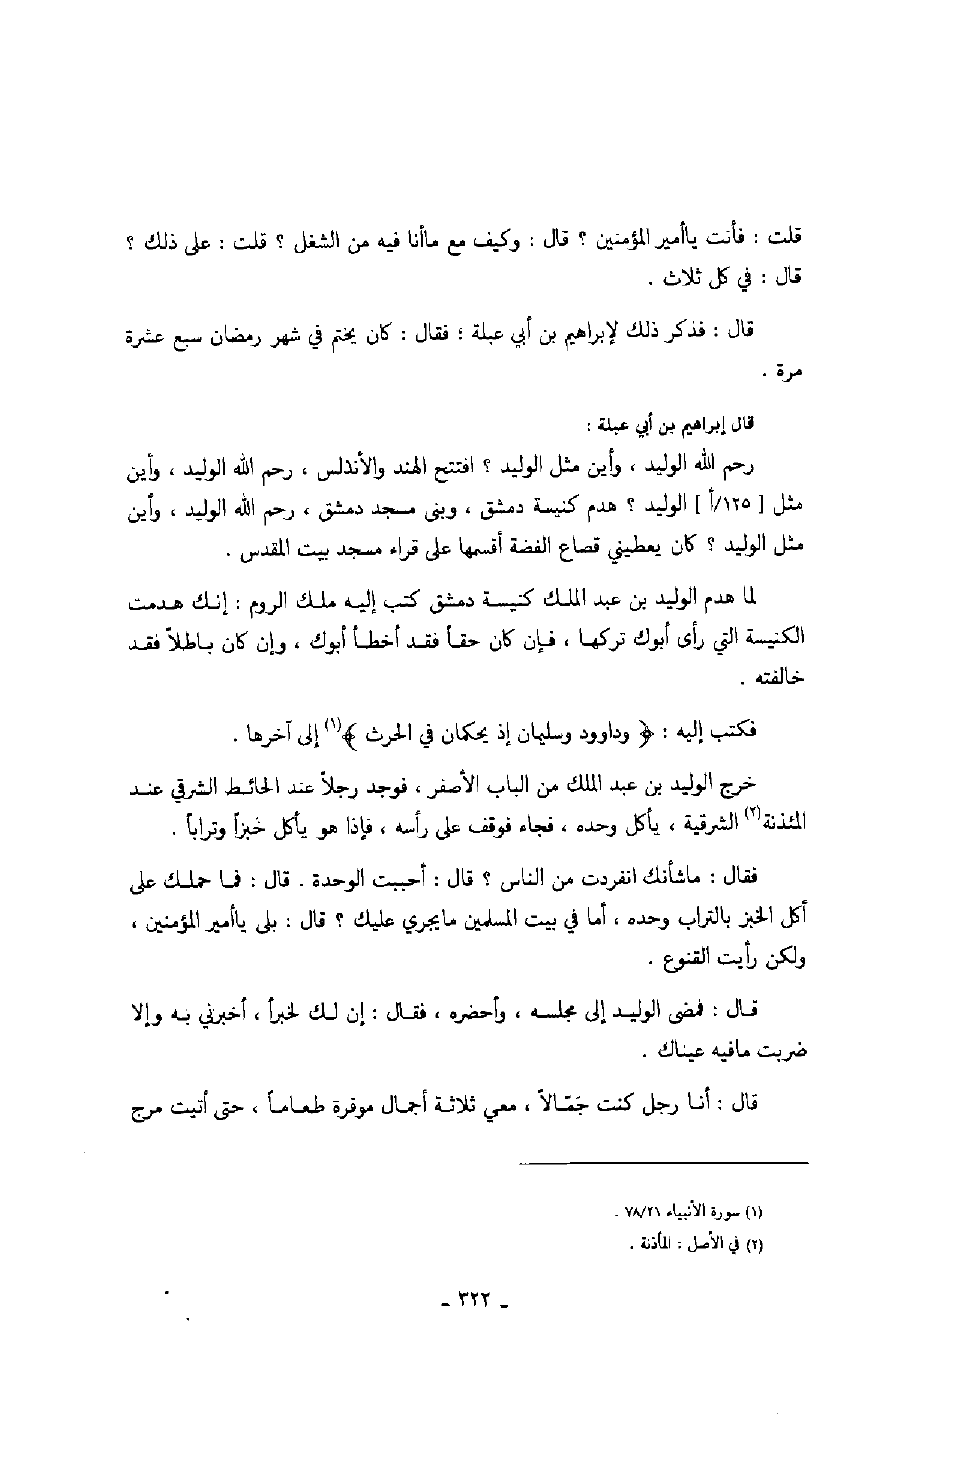 قلت : فأنت ياأمير المؤمنين ؟ قال : وكيف مع ماأنا فيه من الشغل ؟ قلت : على ذلك ؟
قال : في كل ثلاث .
قال : فذكر ذلك لإبراهيم بن أبي عبلة ؛ فقال : كان يختم في شهر رمضان سبع عشرة
مرة .
قال إبراهيم بن أبي عبلة :
رحم الله الوليد ، وأين مثل الوليد ؟ افتتح الهند والأندلس ، رحم الله الوليد ، وأين
مثل [ ١٢٥/أ ] الوليد ؟ هدم كنيسة دمشق ، وبنى مسجد دمشق ، رحم الله الوليد ، وأين
مثل الوليد ؟ كان يعطيني قصاع الفضة أقسمها على قراء مسجد بيت المقدس .
لما هدم الوليد بن عبد الملك كنيسة دمشق كتب إليه ملك الروم : إنك هدمت
الكنيسة التي رأى أبوك تركها ، فإن كان حقاً فقد أخطأ أبوك ، وإن كان باطلاً فقد
خالفته .
فكتب إليه : ﴿ وداوود وسليمان إذ يحكمان في الحرث ﴾(١) إلى آخرها .
خرج الوليد بن عبد الملك من الباب الأصفر ، فوجد رجلاً عند الحائط الشرقي عند
المئذنة(٢) الشرقية ، يأكل وحده ، فجاء فوقف على رأسه ، فإذا هو يأكل خبزاً وتراباً .
فقال : ماشأنك انفردت من الناس ؟ قال : أحببت الوحدة . قال : فما حملك على
أكل الخبز بالتراب وحده ، أما في بيت المسلمين مايجري عليك ؟ قال : بلى ياأمير المؤمنين ،
ولكن رأيت القنوع .
قال : فمضى الوليد إلى مجلسه ، وأحضره ، فقال : إن لك لخبراً ، أخبرني به وإلا
ضربت مافيه عيناك .
قال : أنا رجل كنت جَمّالاً ، معي ثلاثة أجمال موقرة طعاماً ، حتى أتيت مرج
(١) سورة الأنبياء ٧٨/٢١ .
(٢) في الأصل : المأذنة .
- ٣٢٢ -